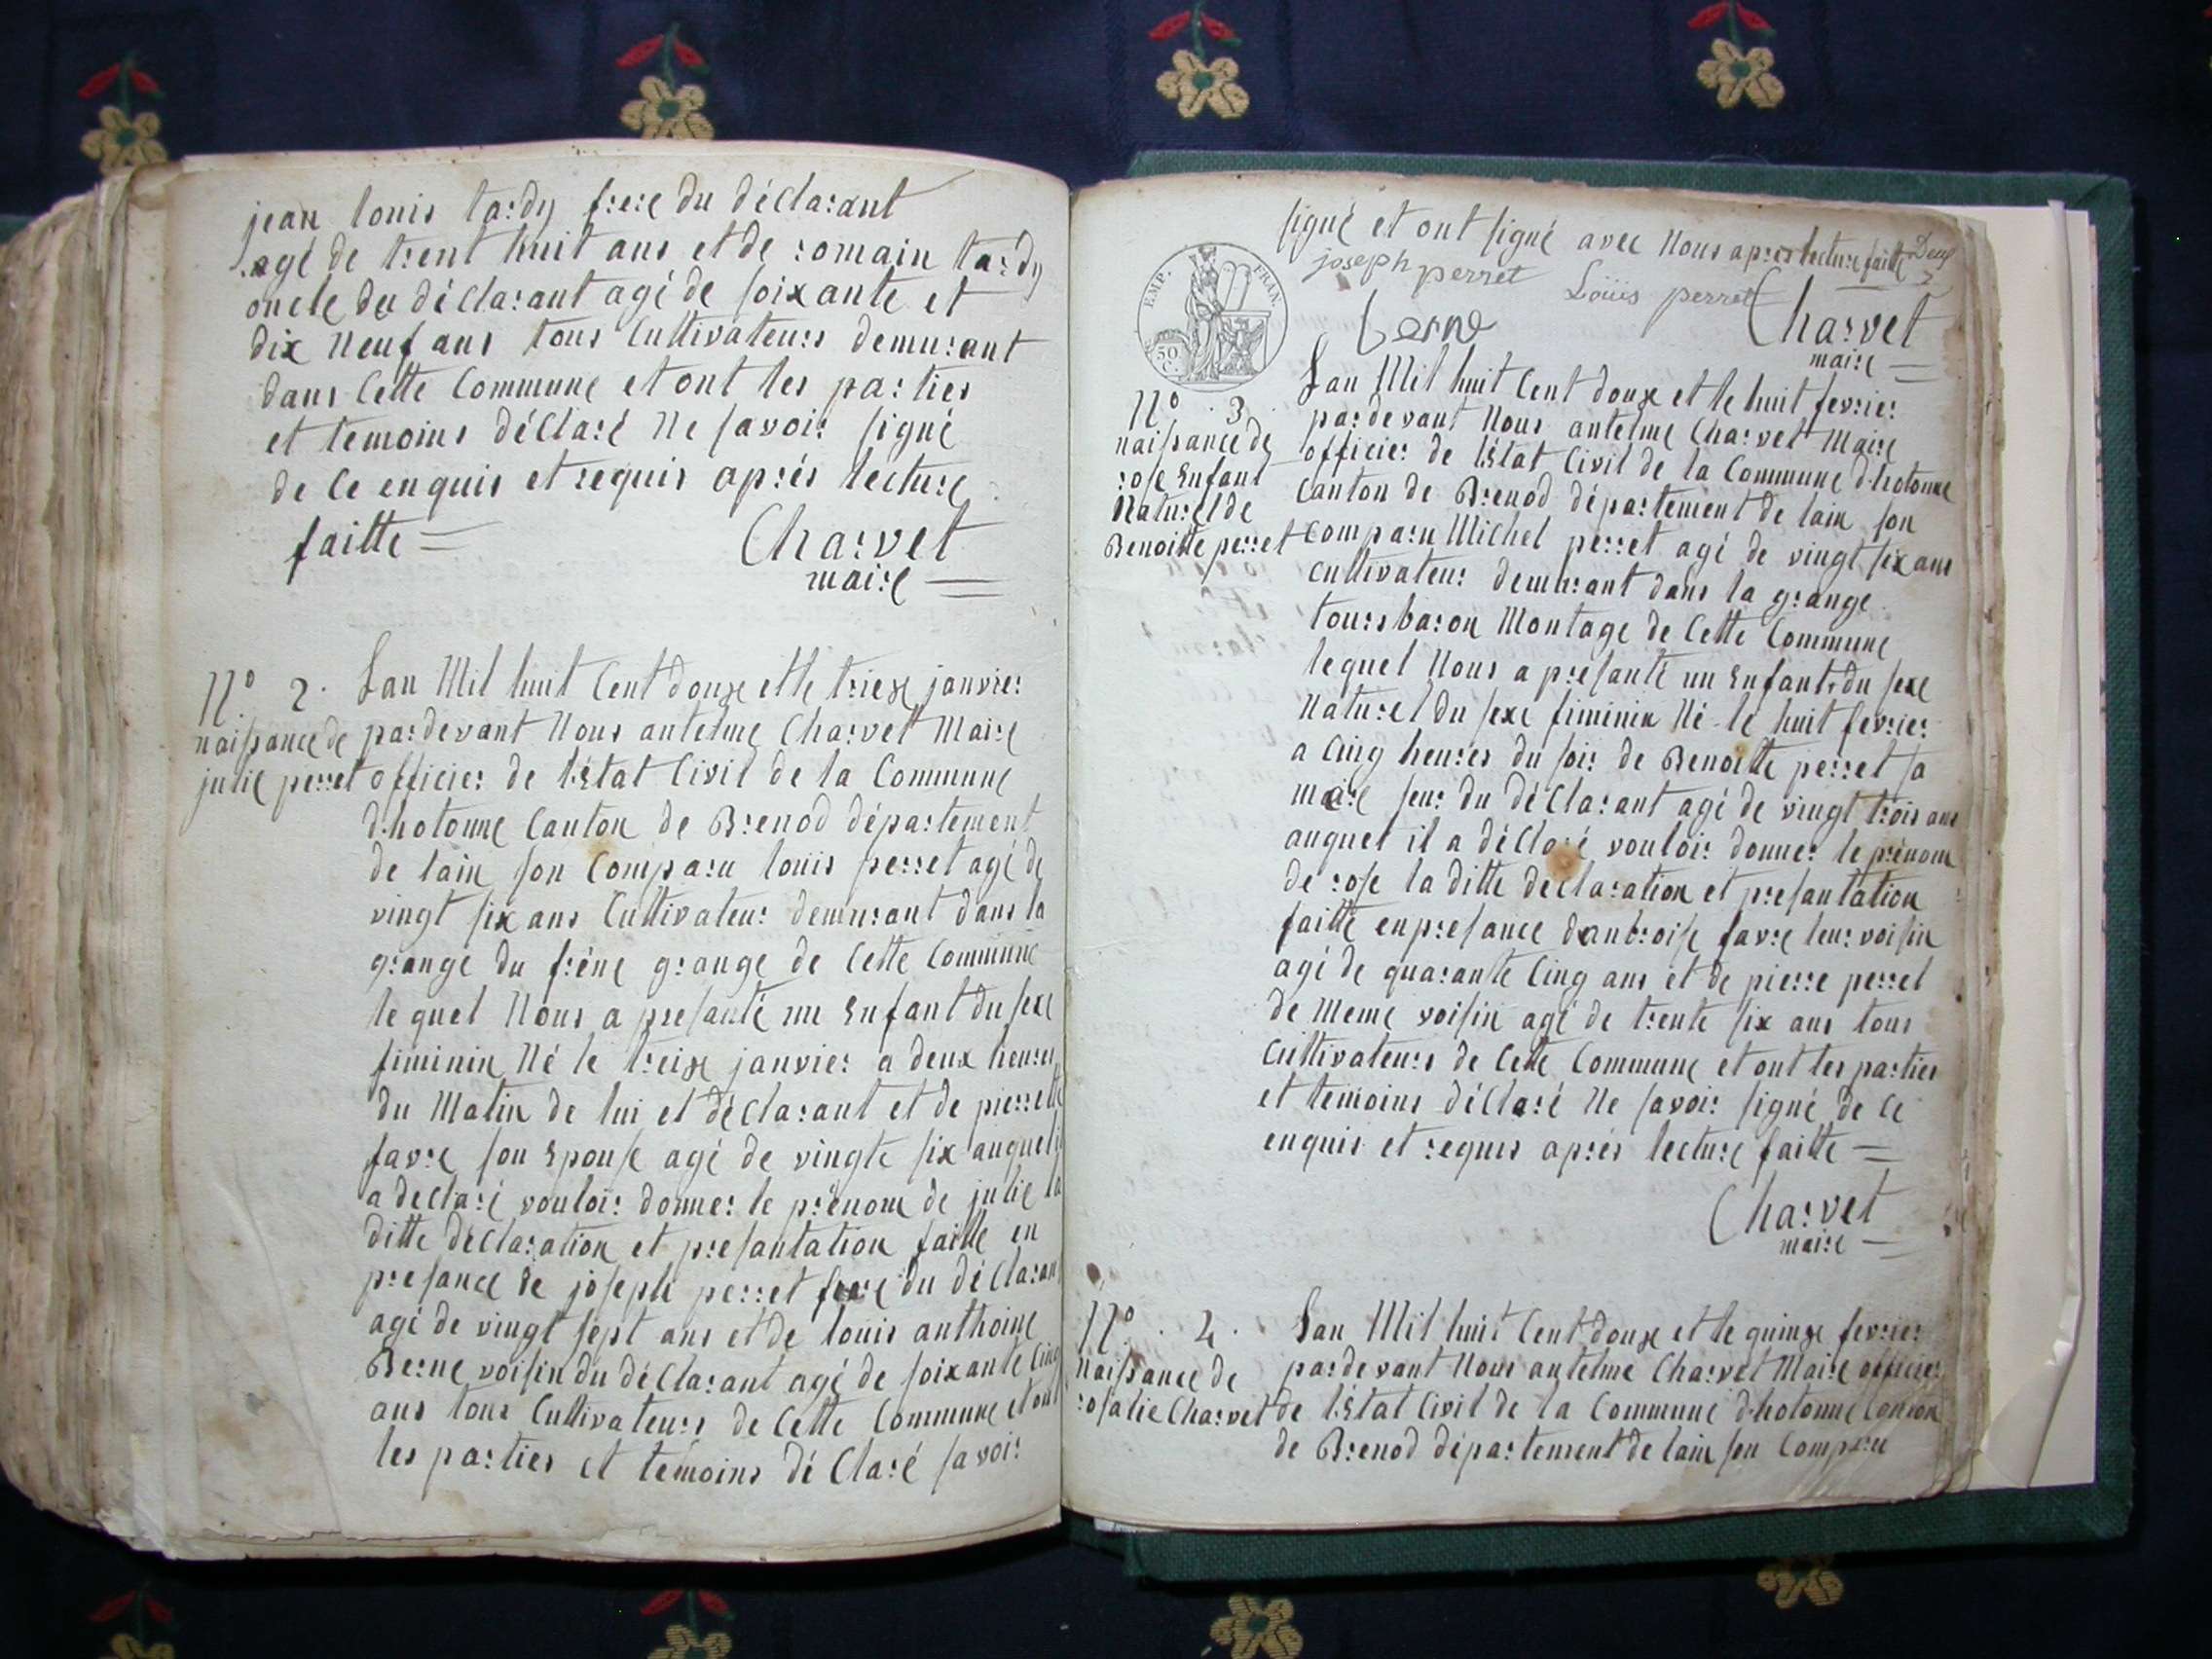 jean louis tardy frere du déclarant
agé de trent huit ans et de romain tardy
oncle du déclarant agé de soixante et
dix neuf ans tous cultivateurs demurant
dans cette commune et ont les parties
et temoins déclaré ne savoir signé
de ce enquis et requis aprés lecture
faitte =
Charvet
maire
N° 2.
naissance de
julie perret
Lan mil huit cent douze et le trieze janvier
pardevant nous antelme Charvet maire
officier de l'état civil de la commune
d'hotonne canton de Brenod département
de lain son comparu louis perret agé de
vingt six ans cultivateur demurant dans la
grange du frène grange de cette commune
lequel nous a presanté un enfant du sexe
fiminin né le treize janvier a deux heures
du matin de lui et déclarant et de pierrette
favre son epouse agé de vingte six auquel il
a declaré vouloir donner le prénom de julie la
ditte déclaration et presantation faitte en
presance de joseph perret frere du déclarant
agé de vingt sept ans et de louis anthoine
Berne voisin du déclarant agé de soixante cinq
ans tous cultivateurs de cette commune et ont
les parties et temoins déclaré savoir
signé et ont signé avec nous apres lecture faitte
Deux
2
joseph perret
Loüis perret
berne
Charvet
maire
EMP. FRAN.
50
C.
N° 3.
naissance de
rose enfant
naturel de
Benoitte perret
Lan mil huit cent douze et le huit fevrier
pardevant nous antelme Charvet maire
officier de l'état civil de la commune d'hotonne
canton de Brenod département de lain son
comparu Michel perret agé de vingt six ans
cultivateur demurant dans la grange
toursbaron montage de cette commune
lequel nous a presanté un enfant du sexe
naturel du sexe fiminin né le huit fevrier
a cinq heures du soir de Benoitte perret sa
maire seur du déclarant agé de vingt trois ans
auquel il a déclaré vouloir donner le prénom
de rose la ditte declaration et presantation
faitte en presance danbroise favre leur voisin
agé de quarante cinq ans et de pierre perret
de meme voisin agé de trente six ans tous
cultivateurs de cette commune et ont les parties
et temoins déclaré ne savoir signé de ce
enquis et requis aprés lecture faitte =
Charvet
maire
N° 4.
naissance de
rosalie Charvet
Lan mil huit cent douze et le quinze fevrier
pardevant nous antelme Charvet maire officier
de l'état civil de la commune d'hotonne canton
de Brenod département de lain son comparu